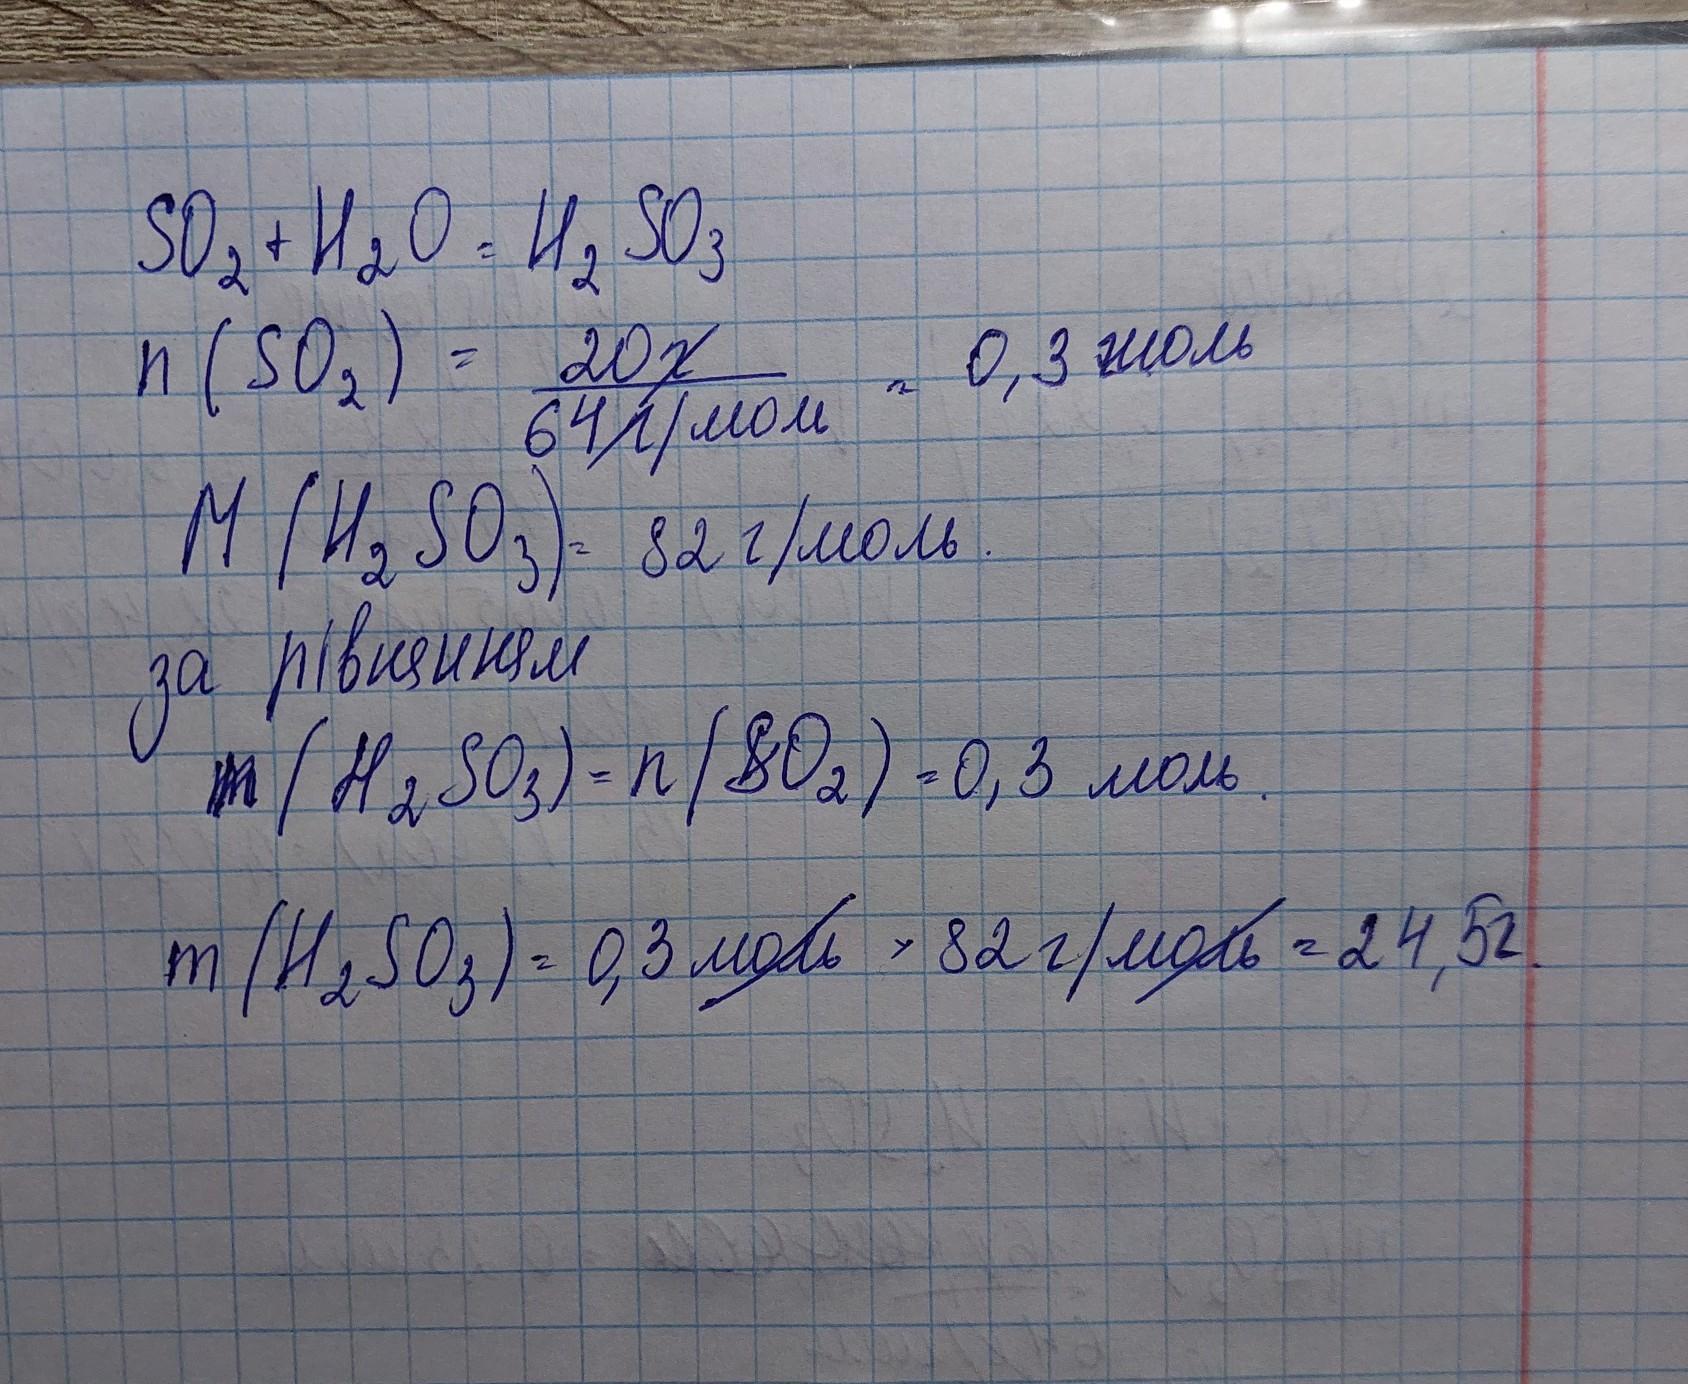 SO₂ + H₂O = H₂SO₃
n (SO₂) = 20г / 64г/мол = 0,3 моль
M (H₂SO₃) = 82 г/моль.
за рівнянням
n (H₂SO₃) = n (SO₂) = 0,3 моль.
m (H₂SO₃) = 0,3 моль · 82 г/моль = 24,5г.